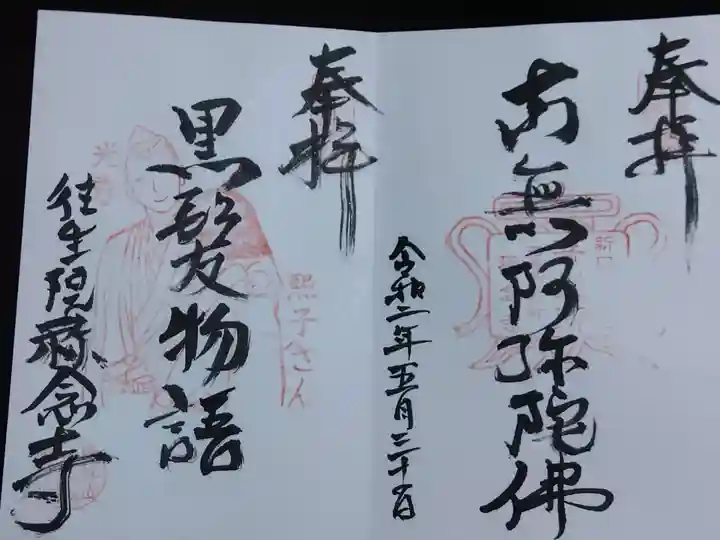 奉拝
南無阿弥陀佛
令和二年五月三十一日
奉拝
黒髪物語
熙子さん
往生院称念寺